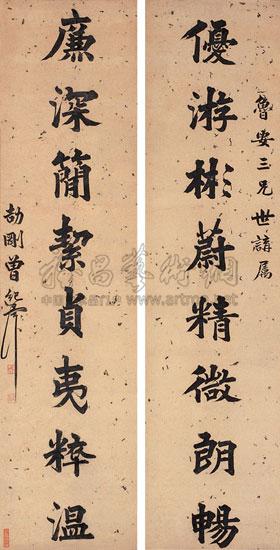 魯安三兄世講属
優游彬蔚精微朗暢
廉深簡絜貞夷粹温
劼剛曾紀澤
雅昌藝術網